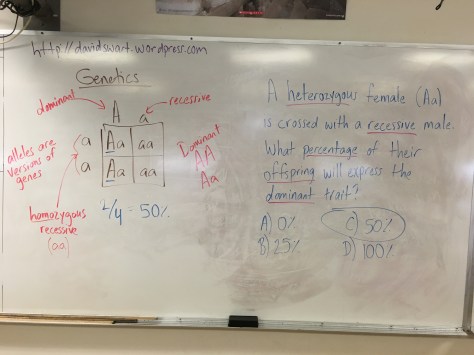 http://davidswart.wordpress.com
Genetics
dominant
recessive
A a
alleles are
versions of
genes
a Aa aa
a Aa aa
Dominant
AA
Aa
homozygous
recessive
(aa)
2/4 = 50%
A heterozygous female (Aa)
is crossed with a recessive male.
What percentage of their
offspring will express the
dominant trait?
A) 0% C) 50%
B) 25% D) 100%